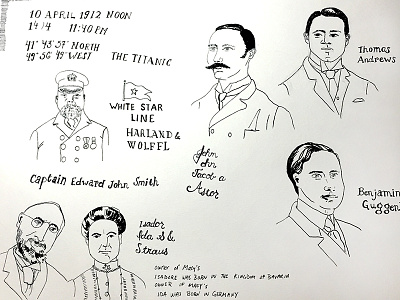 10 APRIL 1912 NOON
14/4 11:40 PM
41° 43' 57" NORTH
49° 56' 49" WEST
THE TITANIC
WHITE STAR
LINE
HARLAND &
WOLFFL
Captain Edward John Smith
John
ohn
Jacob a
Astor
Thomas
Andrews
Benjamin
Guggen
Isador
Ida S&
Straus
OWNER of MACY'S
ISADORE WAS BORN IN THE KINGDOM OF BAVARIA
OWNER OF MACY'S
IDA WAS BORN IN GERMANY